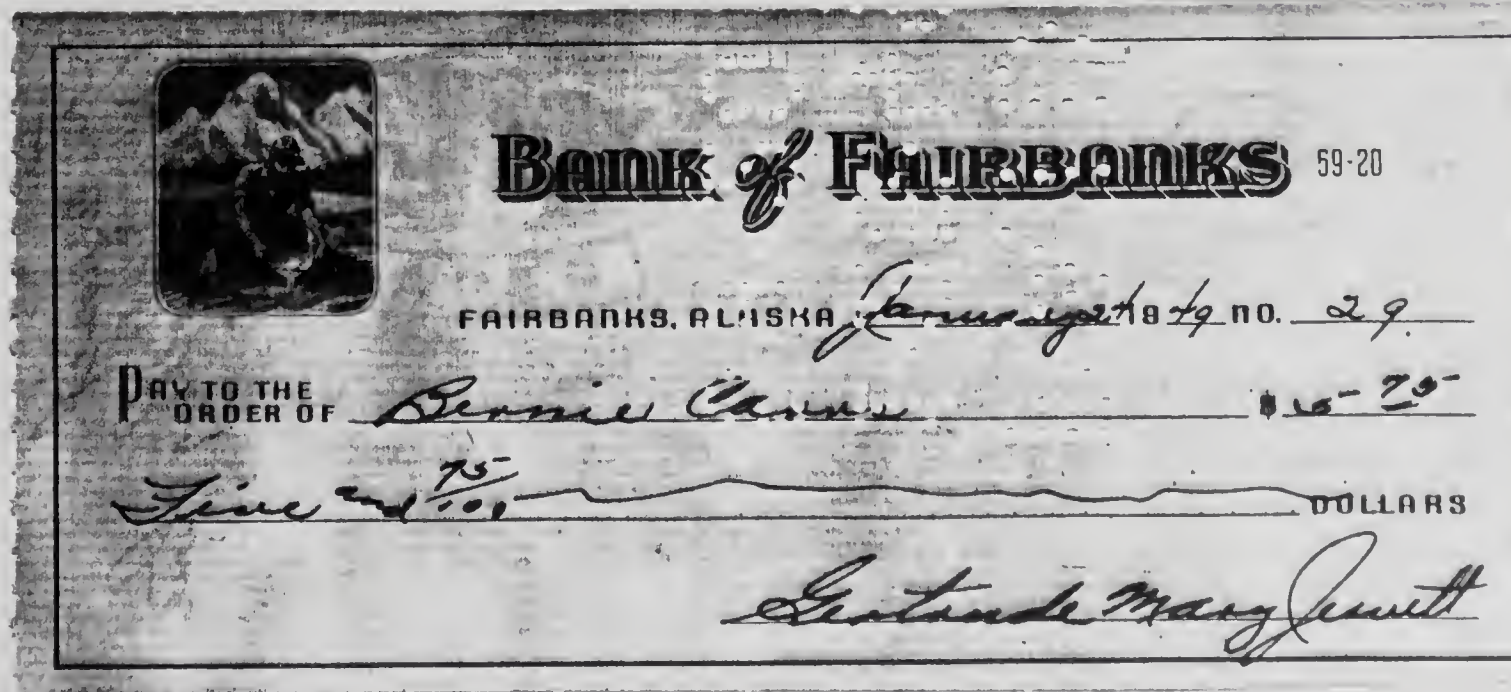 BANK of FAIRBANKS 59-20
FAIRBANKS, ALASKA January 19 49 NO. 29
PAY TO THE ORDER OF Bernie Carrs $ 5 75
Five and 75/100 DOLLARS
Gertrude Mary Jewett